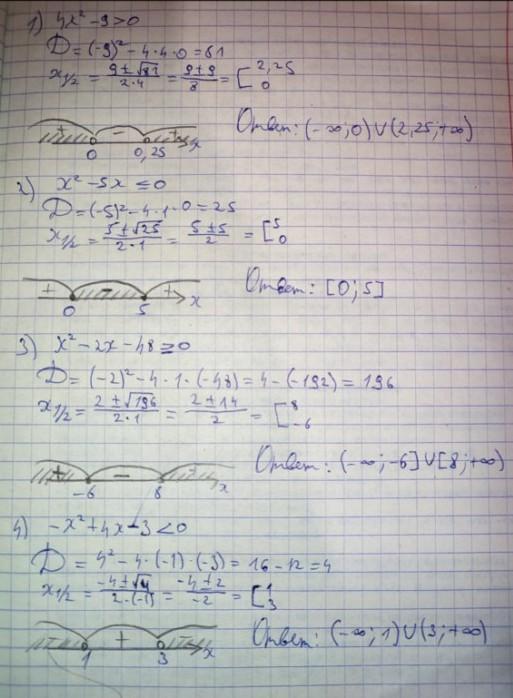 1) 4x² - 9 > 0
D = (-9)² - 4·4·0 = 81
x1/2 = (9 ± √81)/(2·4) = (9 ± 9)/8 = [ 2,25 0
+ - + 0 0,25 x
Ответ: (-∞; 0) ∪ (2,25; +∞)
2) x² - 5x ≤ 0
D = (-5)² - 4·1·0 = 25
x1/2 = (5 ± √25)/(2·1) = (5 ± 5)/2 = [ 5 0
+ - + 0 5 x
Ответ: [0; 5]
3) x² - 2x - 48 ≥ 0
D = (-2)² - 4·1·(-48) = 4 - (-192) = 196
x1/2 = (2 ± √196)/(2·1) = (2 ± 14)/2 = [ 8 -6
+ - -6 8 x
Ответ: (-∞; -6] ∪ [8; +∞)
4) -x² + 4x - 3 < 0
D = 4² - 4·(-1)·(-3) = 16 - 12 = 4
x1/2 = (-4 ± √4)/(2·(-1)) = (-4 ± 2)/(-2) = [ 1 3
- + - 1 3 x
Ответ: (-∞; 1) ∪ (3; +∞)